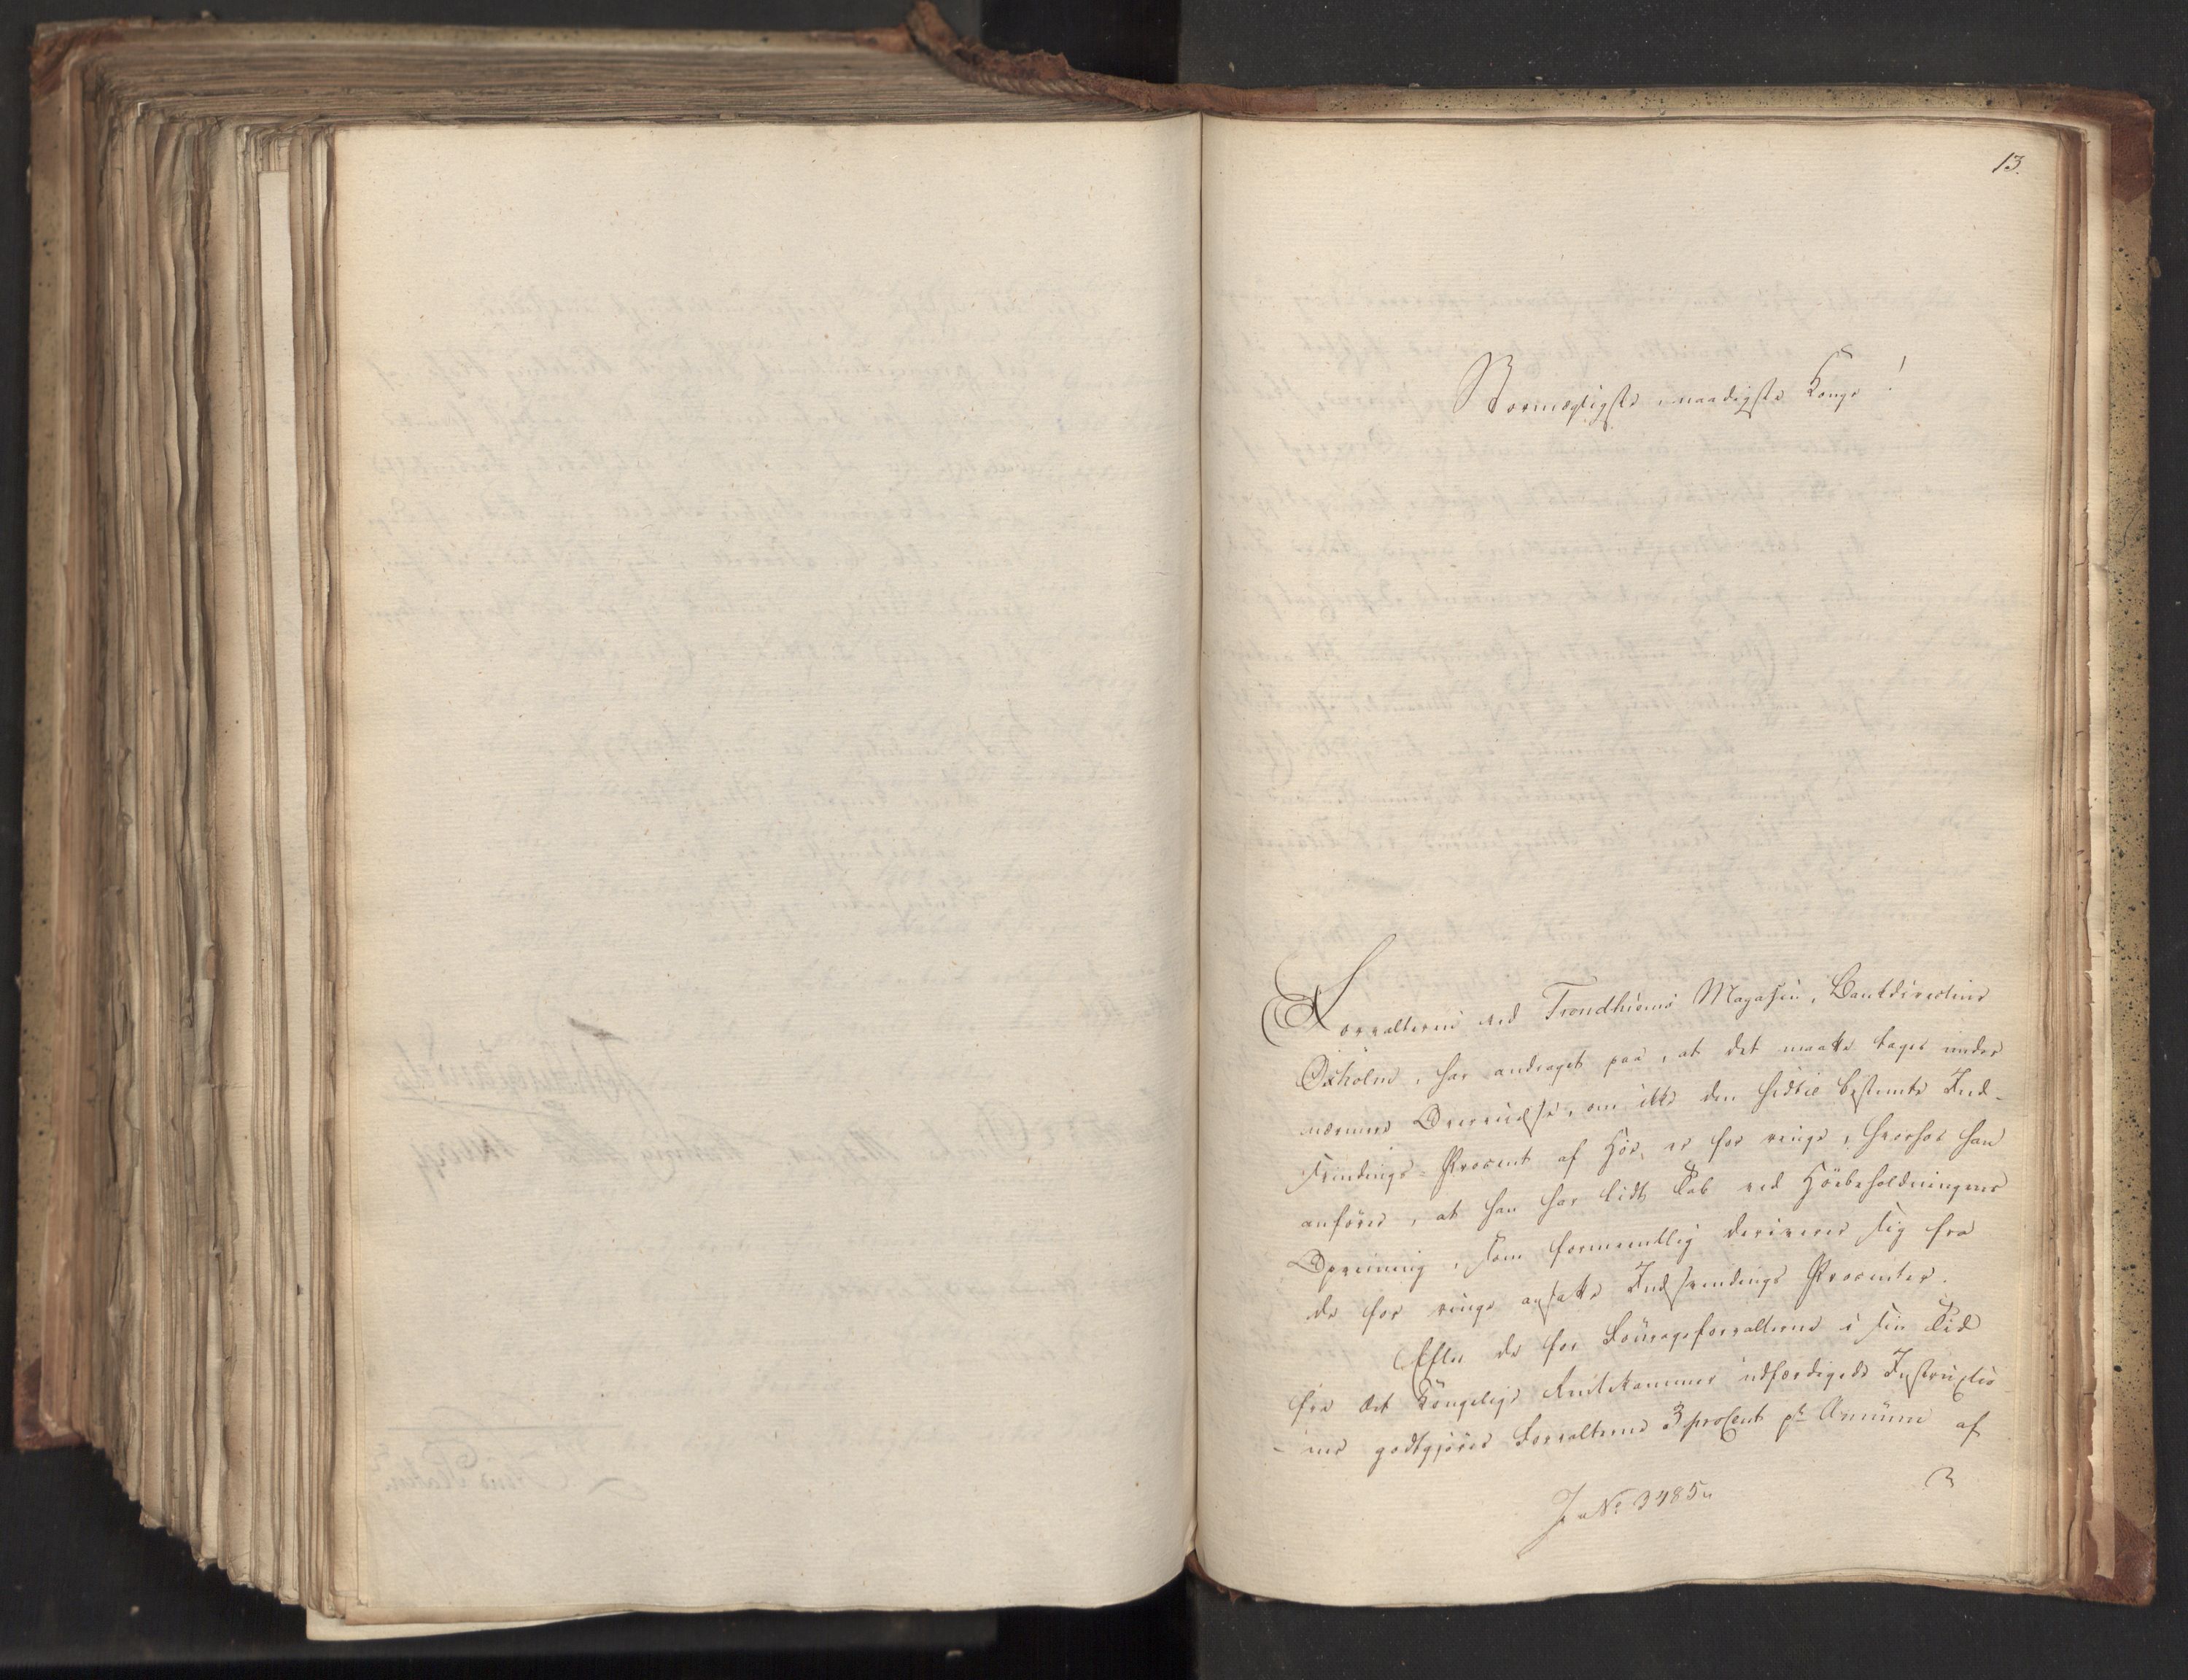 13.
Stormægtigste, naadigste Konge!
Forvalteren ved Trondhiems Magasin, Bankdirecteur
Oxholm, har andraget paa, at det maatte tages under
nærmere Overveielse, om ikke den hidtil bestemte Ind-
svindings-Procent af Höe, er for ringe, hvorhos han
anförer, at han har lidt Tab ved Höebeholdningens
Opveining, som formeentlig deriverer sig fra
de for ringe ansatte Indsvindings Procenter.
Efter de for Fourageforvalterne i sin Tid
fra det Kongelige Rentekammer udfærdigede Instructio-
-ner godtgjöres Forvalterne 3 proCent pr Annum af
J. No 3485.